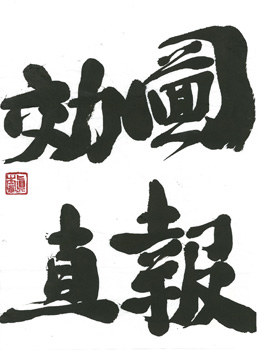 圖報
効直